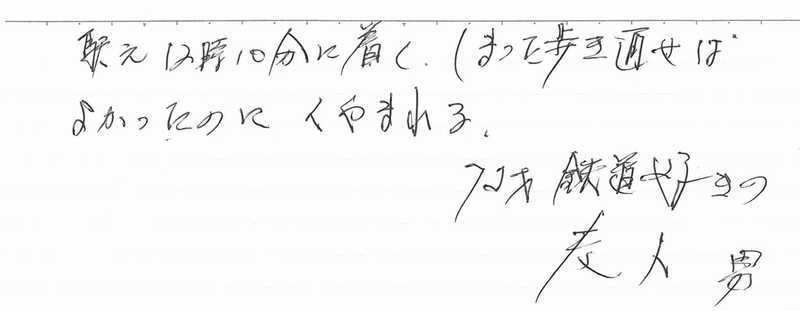 駅え12時10分に着く.しまった歩き通せば
よかったのに くやまれる.
72才 鉄道好きの
老人 男